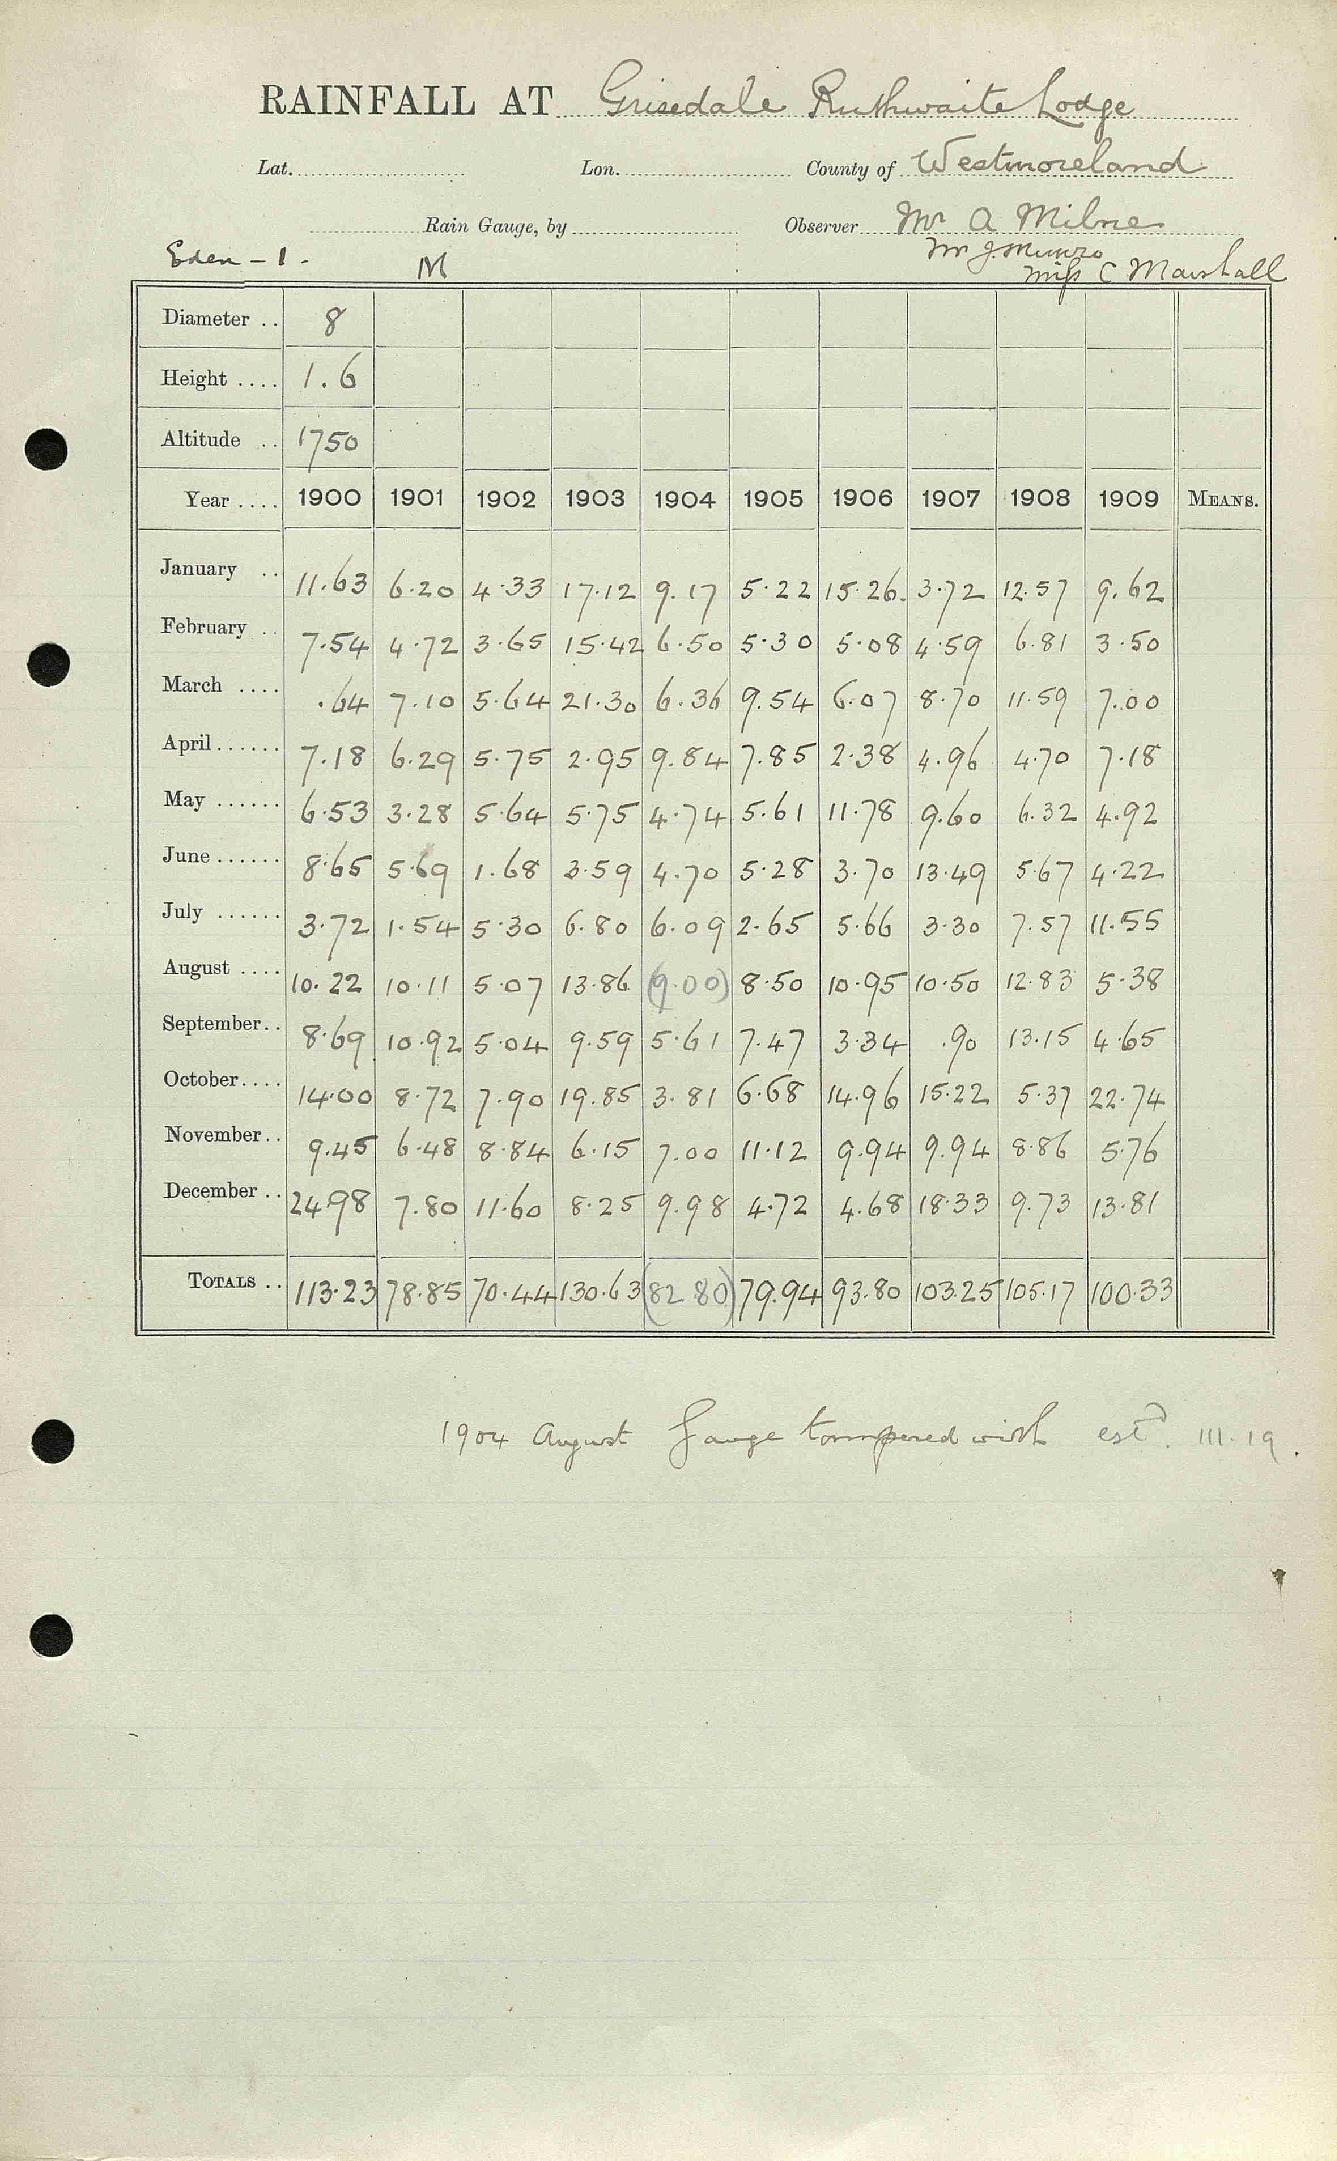 RAINFALL AT Grisedale Ruthwaite Lodge
Lat. Lon. County of Westmoreland
Rain Gauge, by Observer Mr A Milne
Eden - 1. M Mr J. Munro
Miss C Marshall
Diameter .. 8
Height .... 1.6
Altitude .. 1750
Year .... 1900 1901 1902 1903 1904 1905 1906 1907 1908 1909 MEANS.
January .. 11.63 6.20 4.33 17.12 9.17 5.22 15.26 3.72 12.57 9.62
February .. 7.54 4.72 3.65 15.42 6.50 5.30 5.08 4.59 6.81 3.50
March .... .64 7.10 5.64 21.30 6.36 9.54 6.07 8.70 11.59 7.00
April ...... 7.18 6.29 5.75 2.95 9.84 7.85 2.38 4.96 4.70 7.18
May ...... 6.53 3.28 5.64 5.75 4.74 5.61 11.78 9.60 6.32 4.92
June ...... 8.65 5.69 1.68 3.59 4.70 5.28 3.70 13.49 5.67 4.22
July ...... 3.72 1.54 5.30 6.80 6.09 2.65 5.66 3.30 7.57 11.55
August .... 10.22 10.11 5.07 13.86 (9.00) 8.50 10.95 10.50 12.83 5.38
September .. 8.69 10.92 5.04 9.59 5.61 7.47 3.34 .90 13.15 4.65
October .... 14.00 8.72 7.90 19.85 3.81 6.68 14.96 15.22 5.37 22.74
November .. 9.45 6.48 8.84 6.15 7.00 11.12 9.94 9.94 8.86 5.76
December .. 24.98 7.80 11.60 8.25 9.98 4.72 4.68 18.33 9.73 13.81
TOTALS .. 113.23 78.85 70.44 130.63 (82.80) 79.94 93.80 103.25 105.17 100.33
1904 August Gauge tampered with estd. III.19.